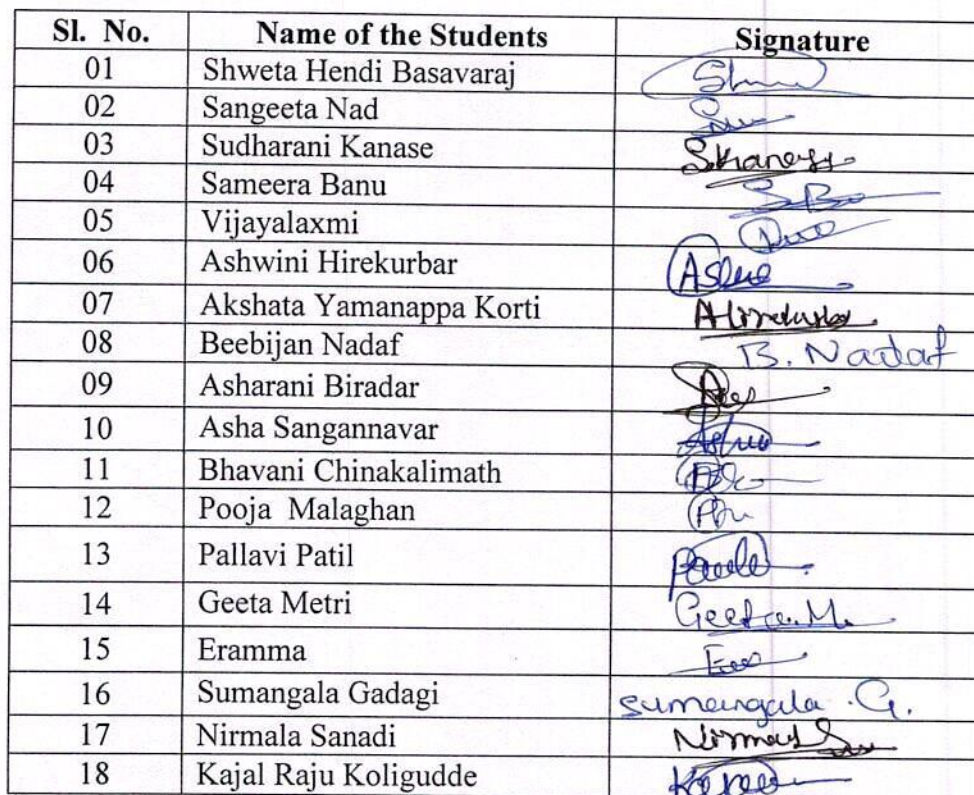 Sl. No. Name of the Students Signature
01 Shweta Hendi Basavaraj
02 Sangeeta Nad
03 Sudharani Kanase
04 Sameera Banu
05 Vijayalaxmi
06 Ashwini Hirekurbar
07 Akshata Yamanappa Korti
08 Beebijan Nadaf B. Nadaf
09 Asharani Biradar
10 Asha Sangannavar
11 Bhavani Chinakalimath
12 Pooja Malaghan
13 Pallavi Patil
14 Geeta Metri Geeta.M.
15 Eramma
16 Sumangala Gadagi sumangala .G.
17 Nirmala Sanadi
18 Kajal Raju Koligudde